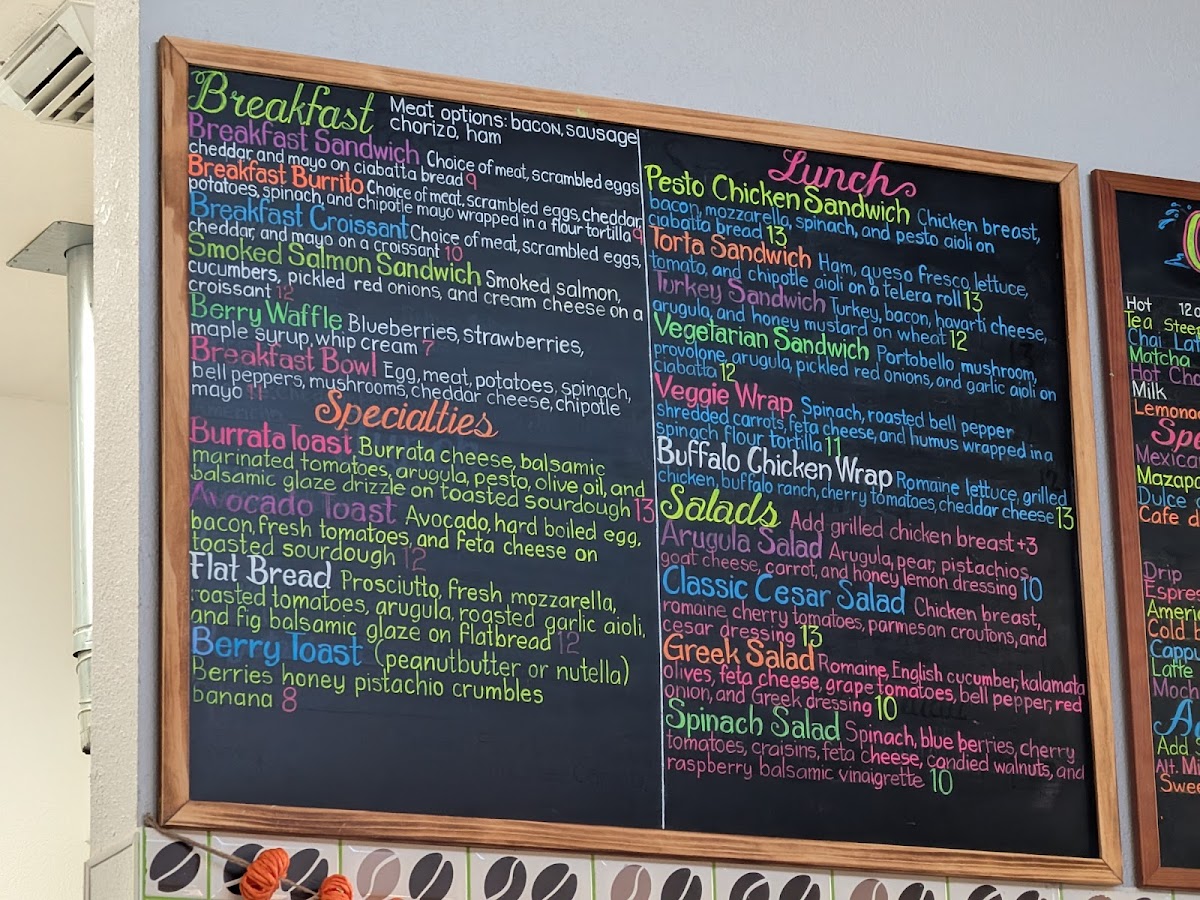 Breakfast
Meat options: bacon, sausage
chorizo, ham
Breakfast Sandwich Choice of meat, scrambled eggs
cheddar, and mayo on ciabatta bread 9
Breakfast Burrito Choice of meat, scrambled eggs, cheddar,
potatoes, spinach, and chipotle mayo wrapped in a flour tortilla 9
Breakfast Croissant Choice of meat, scrambled eggs,
cheddar, and mayo on a croissant 10
Smoked Salmon Sandwich Smoked salmon,
cucumbers, pickled red onions, and cream cheese on a
croissant 12
Berry Waffle Blueberries, strawberries,
maple syrup, whip cream 7
Breakfast Bowl Egg, meat, potatoes, spinach,
bell peppers, mushrooms, cheddar cheese, chipotle
mayo 11
Specialties
Burrata Toast Burrata cheese, balsamic
marinated tomatoes, arugula, pesto, olive oil, and
balsamic glaze drizzle on toasted sourdough 13
Avocado Toast Avocado, hard boiled egg,
bacon, fresh tomatoes, and feta cheese on
toasted sourdough 12
Flat Bread Prosciutto, fresh mozzarella,
roasted tomatoes, arugula, roasted garlic aioli,
and fig balsamic glaze on flatbread 12
Berry Toast (peanutbutter or nutella)
Berries honey pistachio crumbles
banana 8
Lunch
Pesto Chicken Sandwich Chicken breast,
bacon, mozzarella, spinach, and pesto aioli on
ciabatta bread 13
Torta Sandwich Ham, queso fresco, lettuce,
tomato, and chipotle aioli on a telera roll 13
Turkey Sandwich Turkey, bacon, havarti cheese,
arugula, and honey mustard on wheat 12
Vegetarian Sandwich Portobello mushroom,
provolone, arugula, pickled red onions, and garlic aioli on
ciabatta 12
Veggie Wrap Spinach, roasted bell pepper
shredded carrots, feta cheese, and humus wrapped in a
spinach flour tortilla 11
Buffalo Chicken Wrap Romaine lettuce, grilled
chicken, buffalo ranch, cherry tomatoes, cheddar cheese 13
Salads Add grilled chicken breast +3
Arugula Salad Arugula, pear, pistachios,
goat cheese, carrot, and honey lemon dressing 10
Classic Cesar Salad Chicken breast,
romaine cherry tomatoes, parmesan croutons, and
cesar dressing 13
Greek Salad Romaine, English cucumber, kalamata
olives, feta cheese, grape tomatoes, bell pepper, red
onion, and Greek dressing 10
Spinach Salad Spinach, blue berries, cherry
tomatoes, craisins, feta cheese, candied walnuts, and
raspberry balsamic vinaigrette 10
Hot 12
Tea Stee
Chai Lat
Matcha
Hot Cho
Milk
Lemonad
Spe
Mexica
Mazapa
Dulce d
Cafe d
Drip
Espres
Americ
Cold
Cappu
Latte
Moch
Add
Alt. Mi
Swee